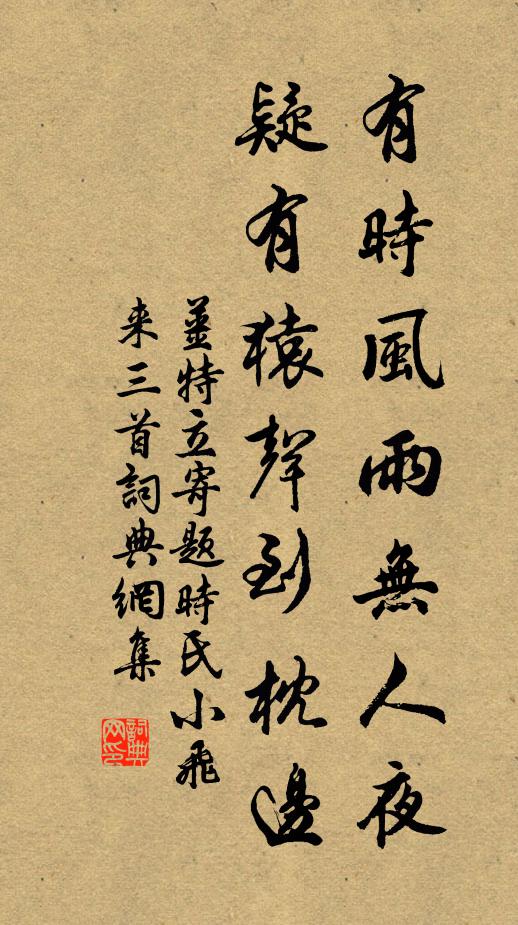 有時風雨無人夜
疑有猿聲到枕邊
薑特立寄題時氏小飛
来三首詞典網集
詞典
网印